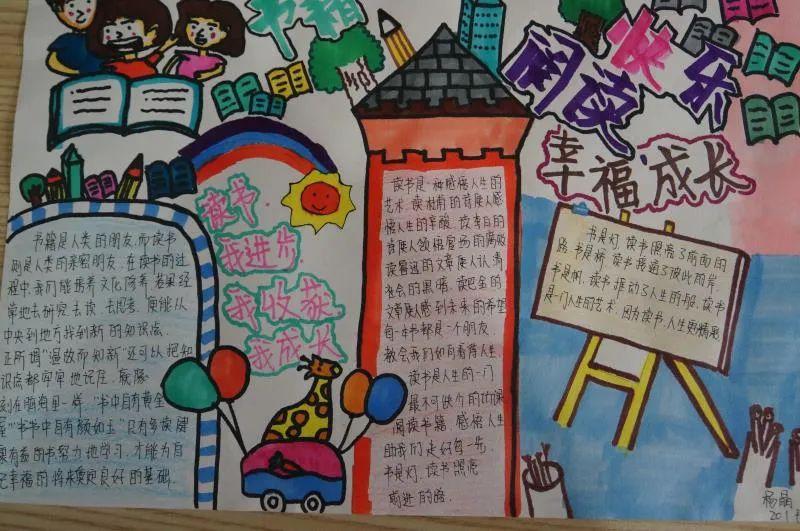 书籍
快乐
阅读
幸福成长
读书
我进步
我收获
我成长
书籍是人类的朋友,而读书
则是人类的亲密朋友,在读书的过
程中,我们能培养文化修养,若果经
常地去研究去读、去阅览,便能从
中央到地方找到新的知识点,
正所谓"温故而知新"还可以把知
识点都牢牢地记在
刻在脑海里一样,"书中自有黄金
屋""书中自有颜如玉"只有多读健
康有益的书努力地学习,才能为自
己幸福的将来奠定良好的基础.
读书是一种感悟人生的
艺术,读杜甫的诗使人感
悟人生的辛酸,读李白的
诗使人领悟官场的腐败
读鲁迅的文章使人认清
社会的黑暗,读巴金的
文章使人感到未来的希望
每一本书都是一个朋友
教会我们如何看待人生
读书是人生的一门
最不可缺少的功课
阅读书籍,感悟人生
助我们走好每一步.
书是灯,读书照亮
前进的路.
书是灯,读书照亮了前面的
路,书是桥,读书接通了彼此的岸,
书是帆,读书推动了人生的船,读书
是一门人生的艺术,因为读书,人生更精彩
杨晶
201